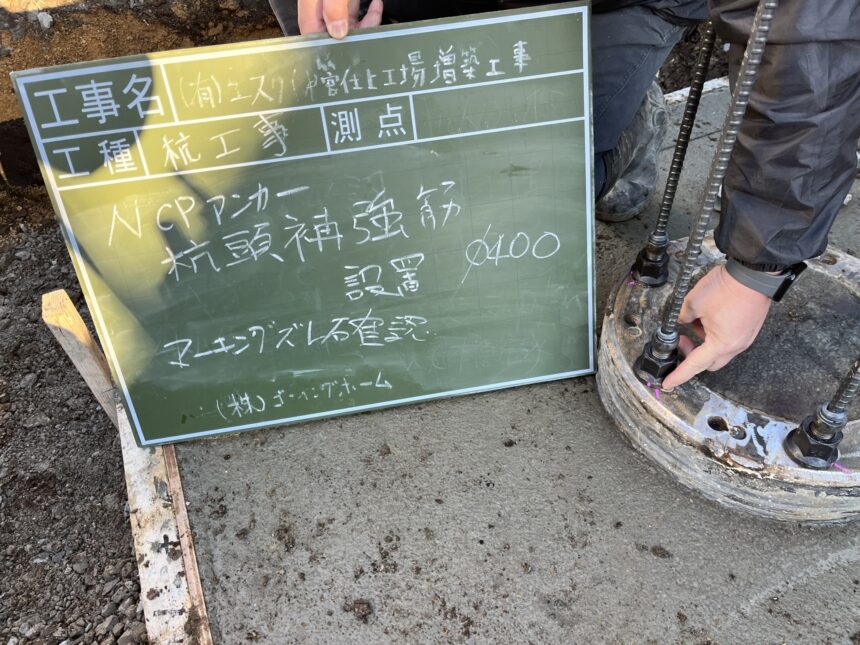 工事名 (有)エスワイ伸管仕上工場増築工事
工種 杭工事 測点
NCPアンカー
杭頭補強筋
設置 φ400
マーキングズレ確認
(株)ゴーイングホーム